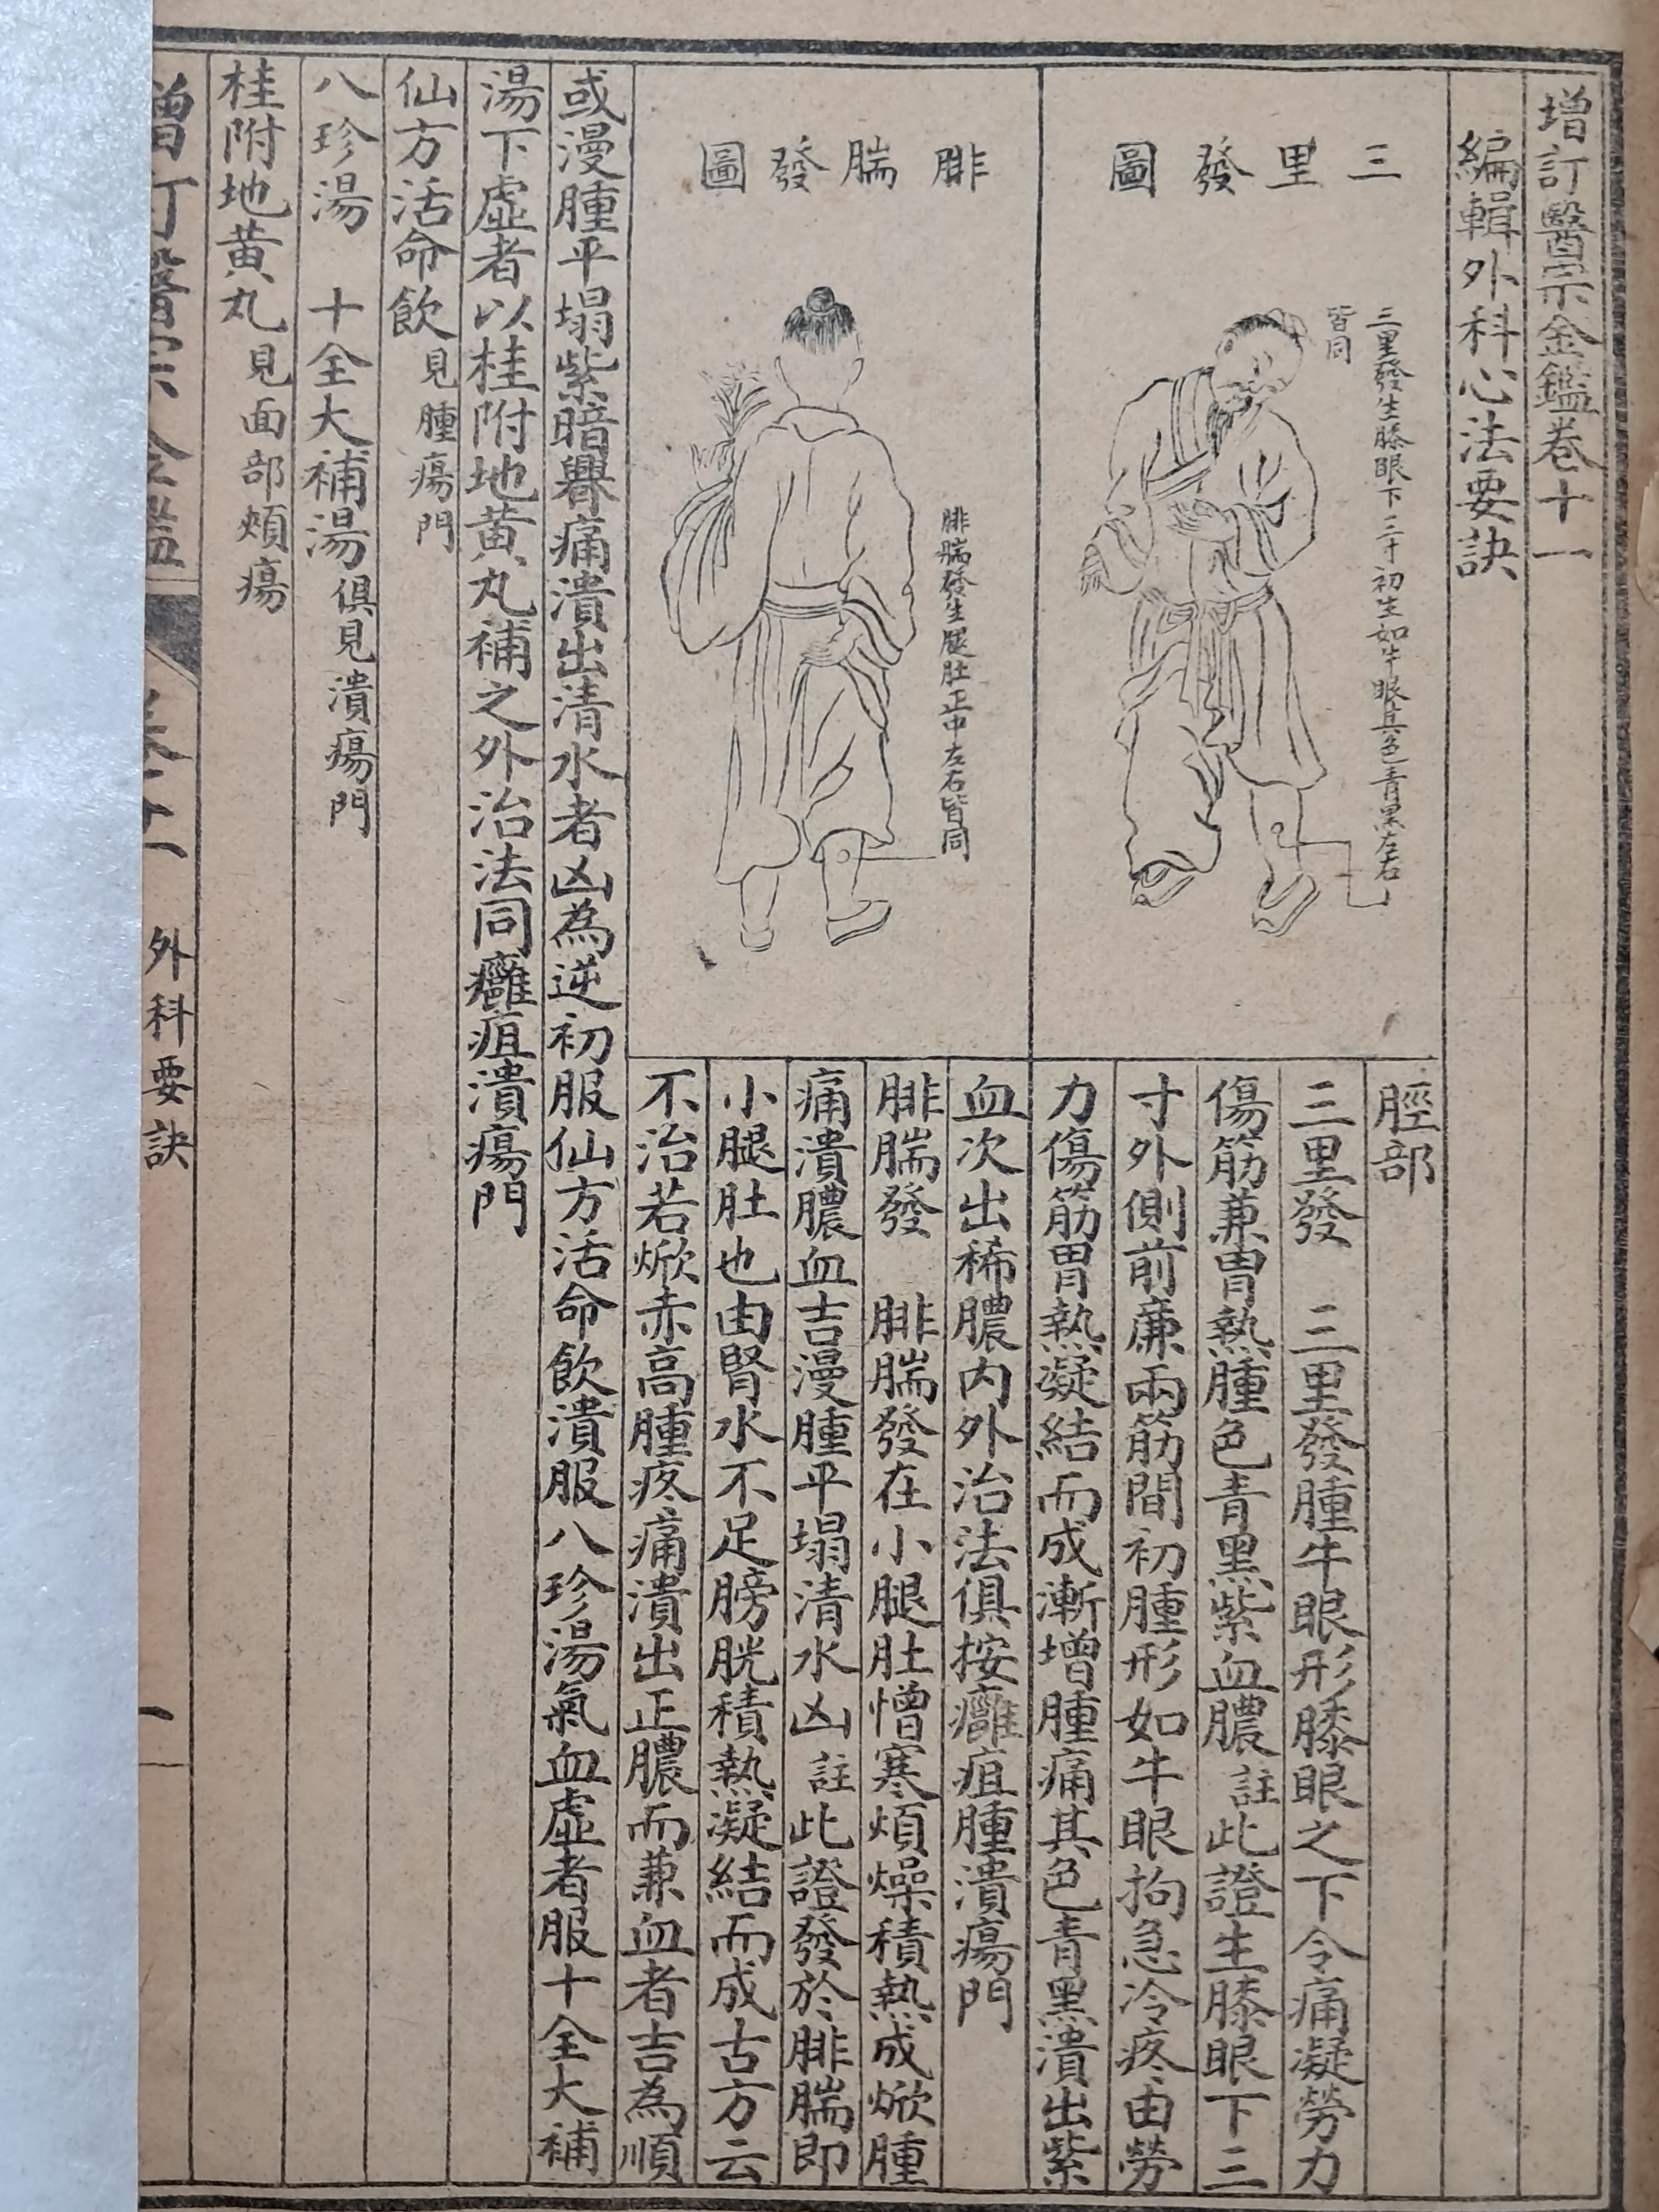 增訂醫宗金鑑卷十一
編輯外科心法要訣
三里發圖
三里發生膝眼下三寸初生如牛眼其色青黑左右
皆同
腓腨發圖
腓腨發生腿肚正中左右皆同
脛部
三里發　三里發腫牛眼形膝眼之下令痛凝勞力
傷筋兼胃熱腫色青黑紫血膿註此證生膝眼下三
寸外側前廉兩筋間初腫形如牛眼拘急冷疼由勞
力傷筋胃熱凝結而成漸增腫痛其色青黑潰出紫
血次出稀膿內外治法俱按癰疽腫潰瘍門
腓腨發　腓腨發在小腿肚憎寒煩燥積熱成焮腫
痛潰膿血吉漫腫平塌清水凶註此證發於腓腨即
小腿肚也由腎水不足膀胱積熱凝結而成古方云
不治若焮赤高腫疼痛潰出正膿而兼血者吉為順
或漫腫平塌紫暗臖痛潰出清水者凶為逆初服仙方活命飲潰服八珍湯氣血虛者服十全大補
湯下虛者以桂附地黃丸補之外治法同癰疽潰瘍門
仙方活命飲見腫瘍門
八珍湯　十全大補湯俱見潰瘍門
桂附地黃丸見面部頰瘍
增訂醫宗金鑑　卷十一　外科要訣　一